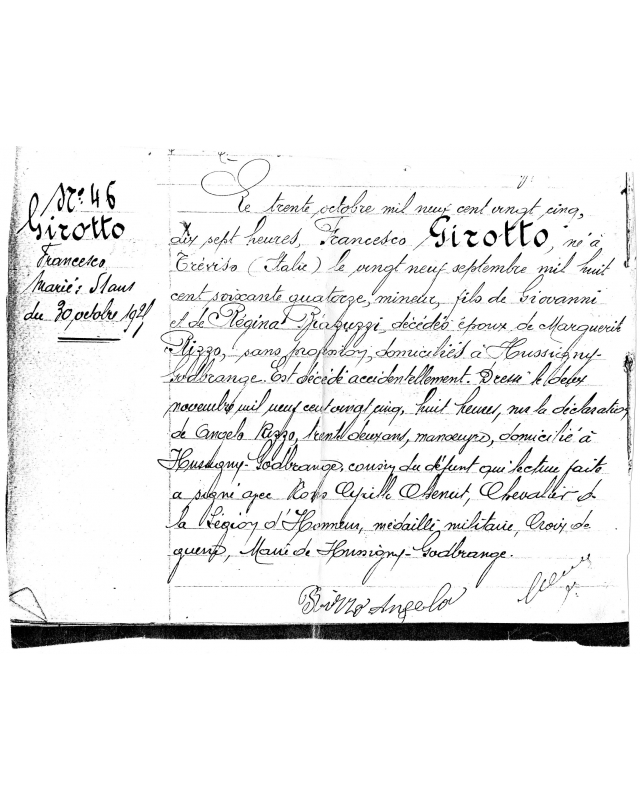 Nº 46
Girotto
Francesco
Marié: 51 ans
du 30 octobre 1925
Le trente octobre mil neuf cent vingt cinq,
dix sept heures, Francesco Girotto, né à
Tréviso (Italie) le vingt neuf septembre mil huit
cent soixante quatorze, mineur, fils de Giovanni
et de Régina Bragozzi, décédés époux de Marguerite
Rizzo, sans profession, domiciliés à Hussigny-
Godbrange. Est décédé accidentellement. Dressé le deux
novembre mil neuf cent vingt cinq, huit heures, sur la déclaration
de Angelo Rizzo, trente deux ans, manoeuvre, domicilié à
Hussigny-Godbrange, cousin du défunt qui lecture faite
a signé avec Nous Cyrille Chenut, Chevalier de
la Légion d'Honneur, médaille militaire, Croix de
guerre, Maire de Hussigny-Godbrange.
Rizzo Angelo